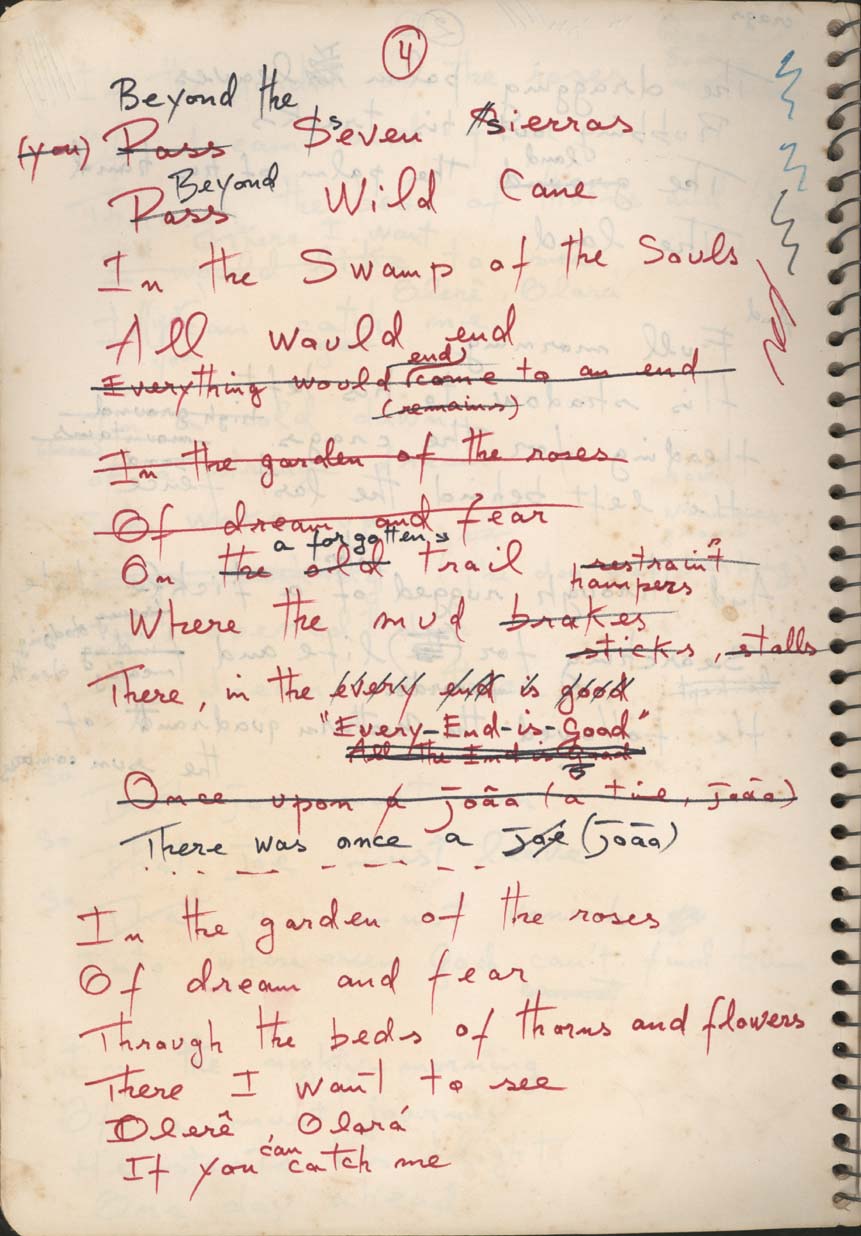 4
Beyond the
(you) Pass Seven Sierras
Beyond
Pass Wild Cane
In the Swamp of the Souls
All would end
end
Everything would come to an end
(remains)
In the garden of the roses
Of dream and fear
a forgotten
On the old trail restrain
hampers
Where the mud brakes
sticks, stalls
There, in the every end is good
"Every-End-is-Good"
All the End is Good
Once upon a joão (a time, joão)
There was once a joé (joão)
In the garden of the roses
Of dream and fear
Through the beds of thorns and flowers
There I want to see
Olerê, Olará
can
If you catch me